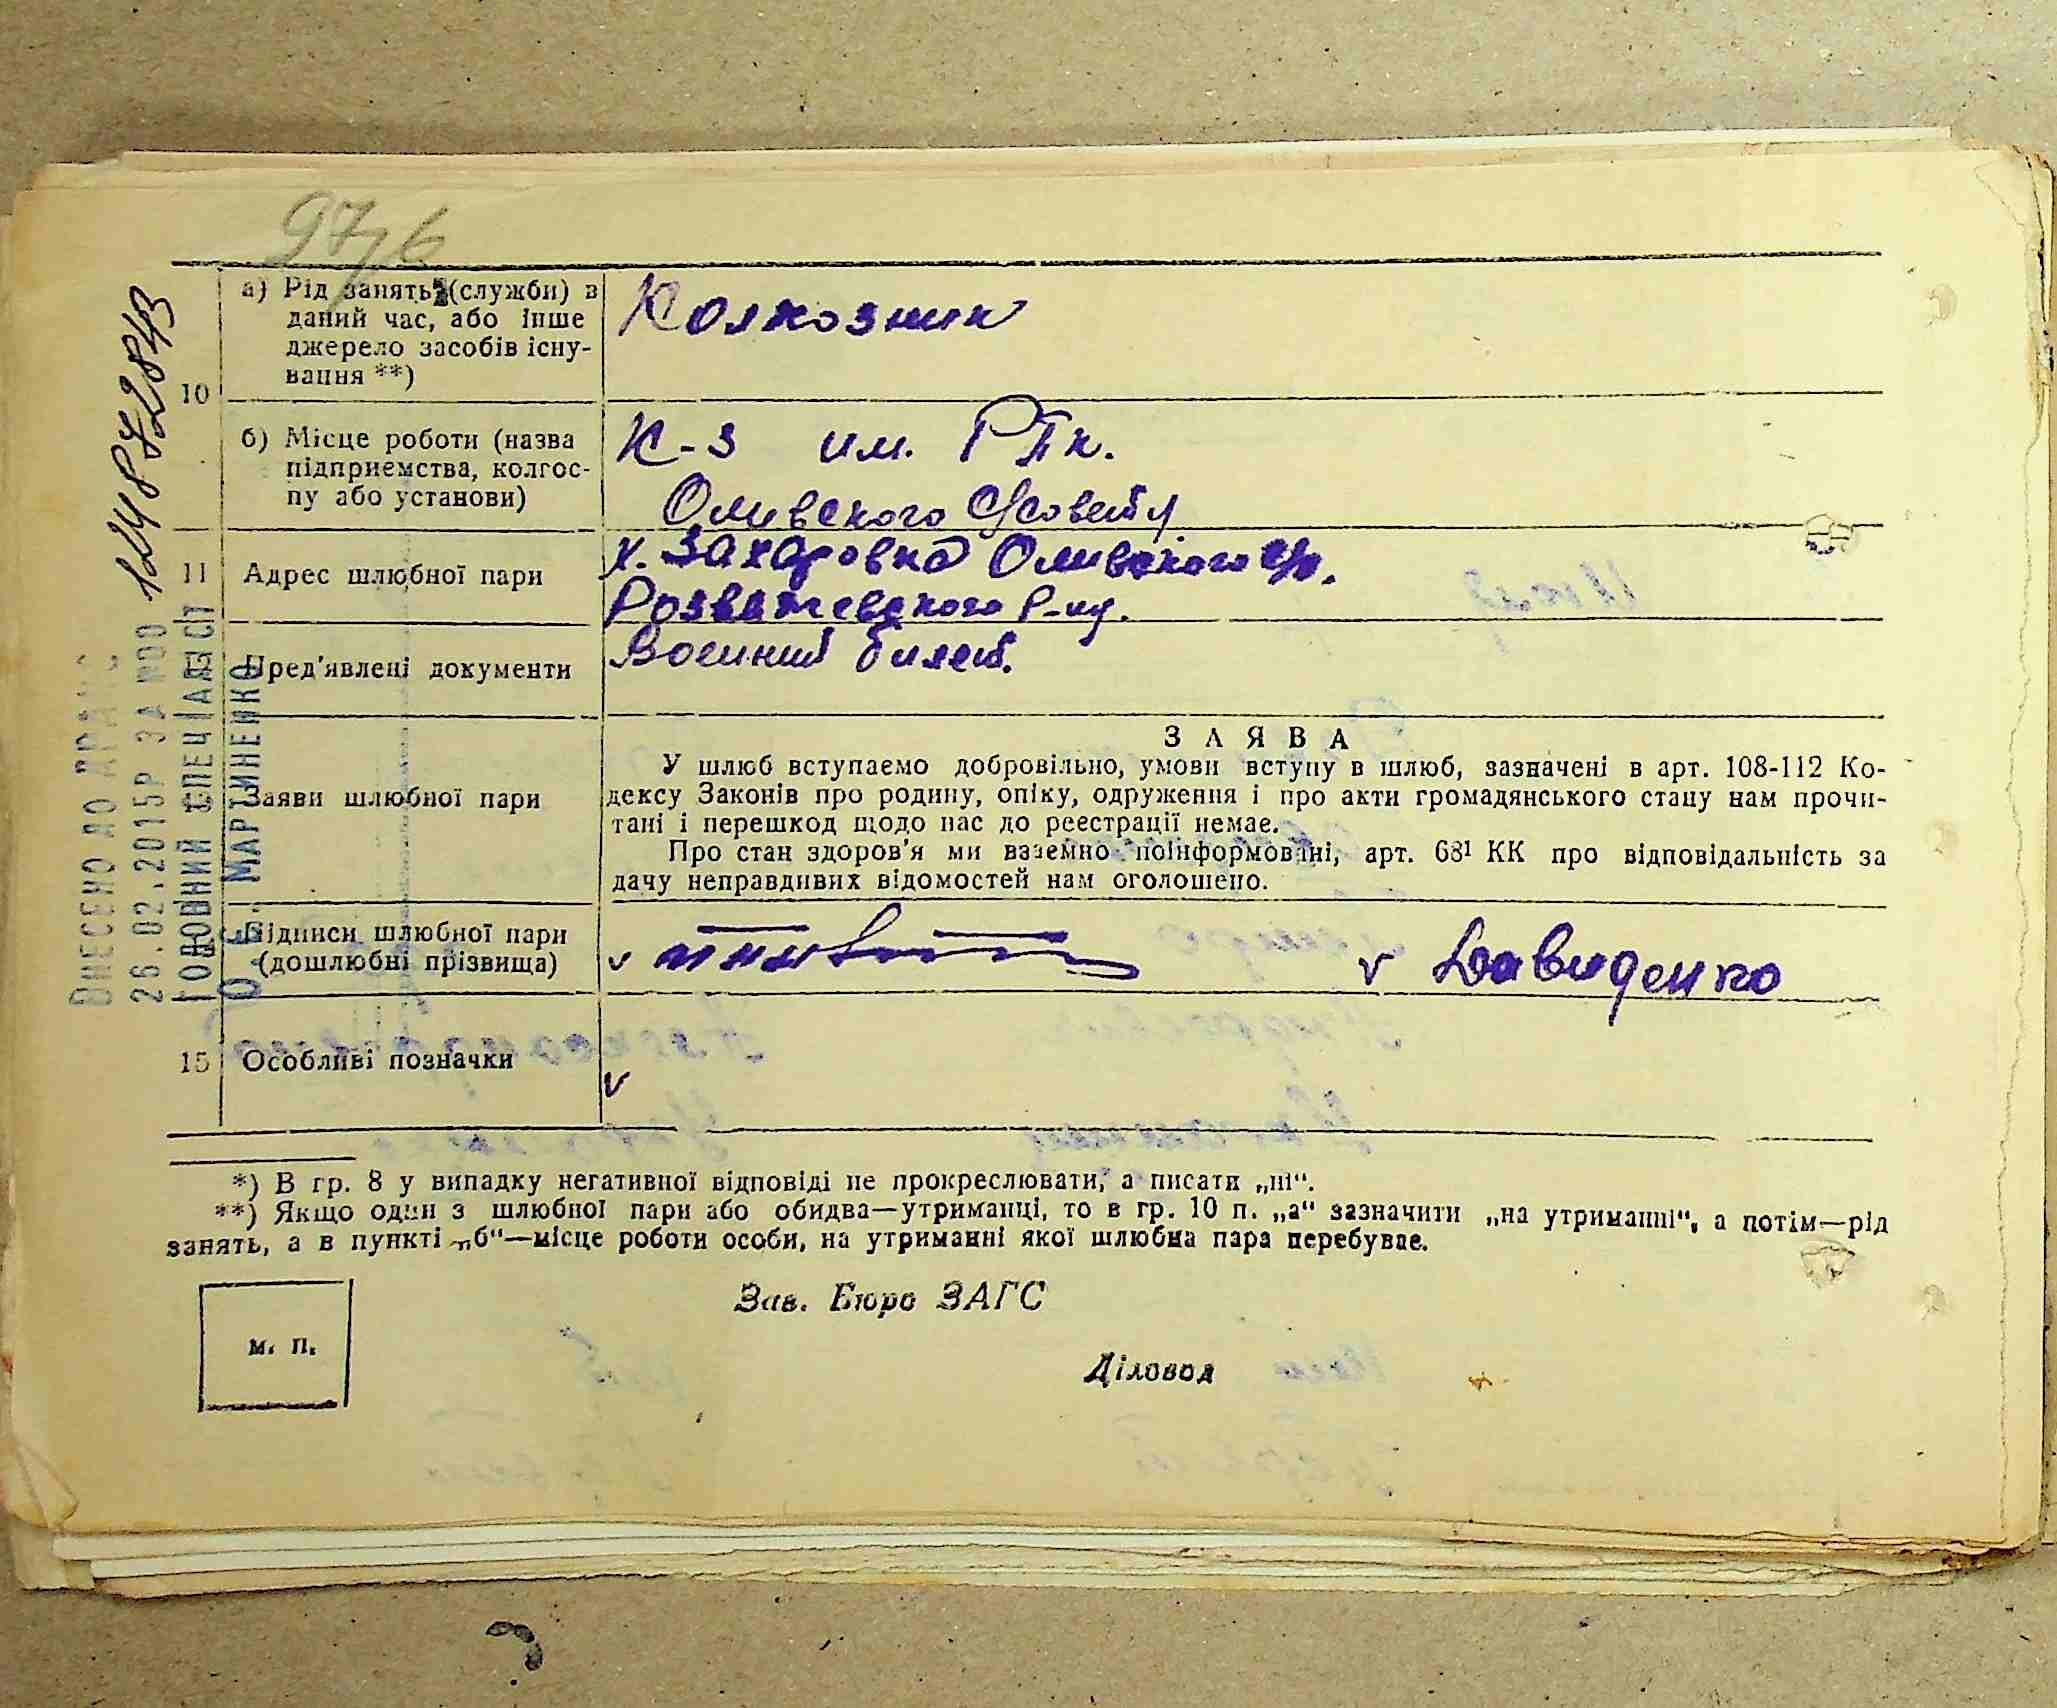 97/6
а) Рід занять (служби) в
даний час, або інше
джерело засобів існу-
вання **)
Колхозник
10
б) Місце роботи (назва
підприємства, колгос-
пу або установи)
К-з им.
Оливского
11 Адрес шлюбної пари
х. Захаровка Оливского с/с.
Розважевского р-ну.
12 Пред'явлені документи
Военний билет.
Заяви шлюбної пари
ЗАЯВА
У шлюб вступаємо добровільно, умови вступу в шлюб, зазначені в арт. 108-112 Ко-
дексу Законів про родину, опіку, одруження і про акти громадянського стану нам прочи-
тані і перешкод щодо нас до реєстрації немає.
Про стан здоров'я ми взаємно поінформовані, арт. 68¹ КК про відповідальність за
дачу неправдивих відомостей нам оголошено.
Підписи шлюбної пари
(дошлюбні прізвища)
v v Давиденко
15 Особливі позначки
v
*) В гр. 8 у випадку негативної відповіді не прокреслювати, а писати „ні“.
**) Якщо один з шлюбної пари або обидва—утриманці, то в гр. 10 п. „а“ зазначити „на утриманні“, а потім—рід
занять, а в пункті „б“—місце роботи особи, на утриманні якої шлюбна пара перебуває.
Зав. Бюро ЗАГС
М. П.
Діловод
ВНЕСЕНО ДО
26.02.2015Р ЗА №00 124872843
ГОЛОВНИЙ СПЕЦІАЛІСТ
МАРТИНЕНКО